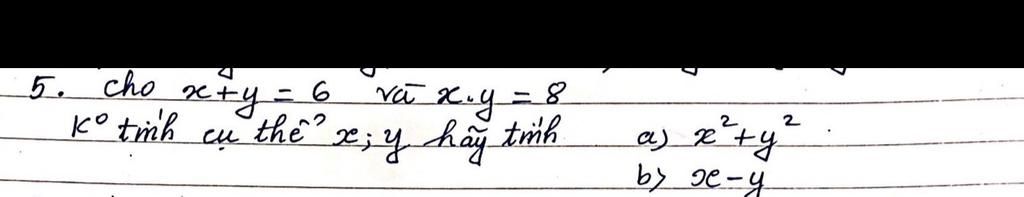 5. cho x+y = 6 và x.y = 8
K° tính cụ thể x; y hãy tính a) x²+y²
b) x-y